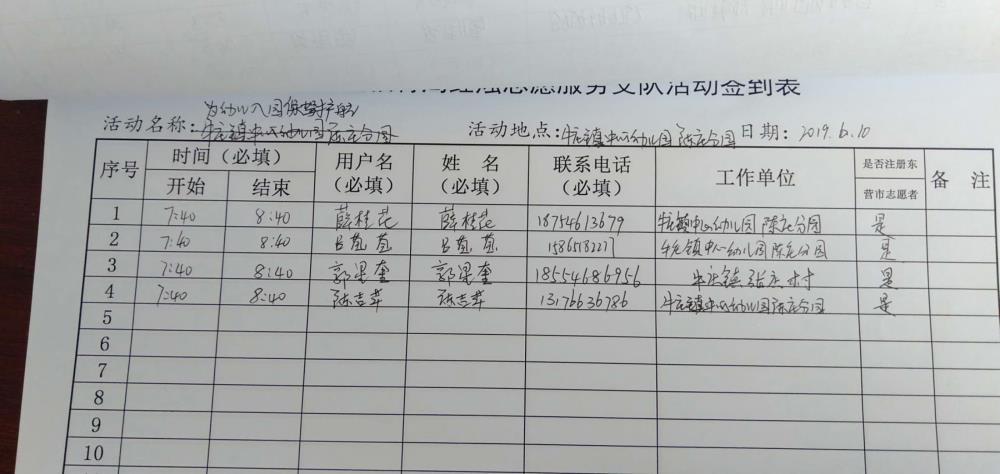 志愿服务支队活动签到表
为幼儿入园保驾护航
活动名称:牛庄镇中心幼儿园陈庄分园 活动地点:牛庄镇中心幼儿园陈庄分园 日期:2019.6.10
序号 时间(必填) 用户名(必填) 姓 名(必填) 联系电话(必填) 工作单位 是否注册东营市志愿者 备 注
开始 结束
1 7:40 8:40 薛桂花 薛桂花 18754613679 牛庄镇中心幼儿园陈庄分园 是
2 7:40 8:40 吕苑苑 吕苑苑 15865182277 牛庄镇中心幼儿园陈庄分园 是
3 7:40 8:40 郭梁奎 郭梁奎 18554686956 牛庄镇张庄村 是
4 7:40 8:40 张吉苹 张吉苹 13176636786 牛庄镇中心幼儿园陈庄分园 是
5
6
7
8
9
10